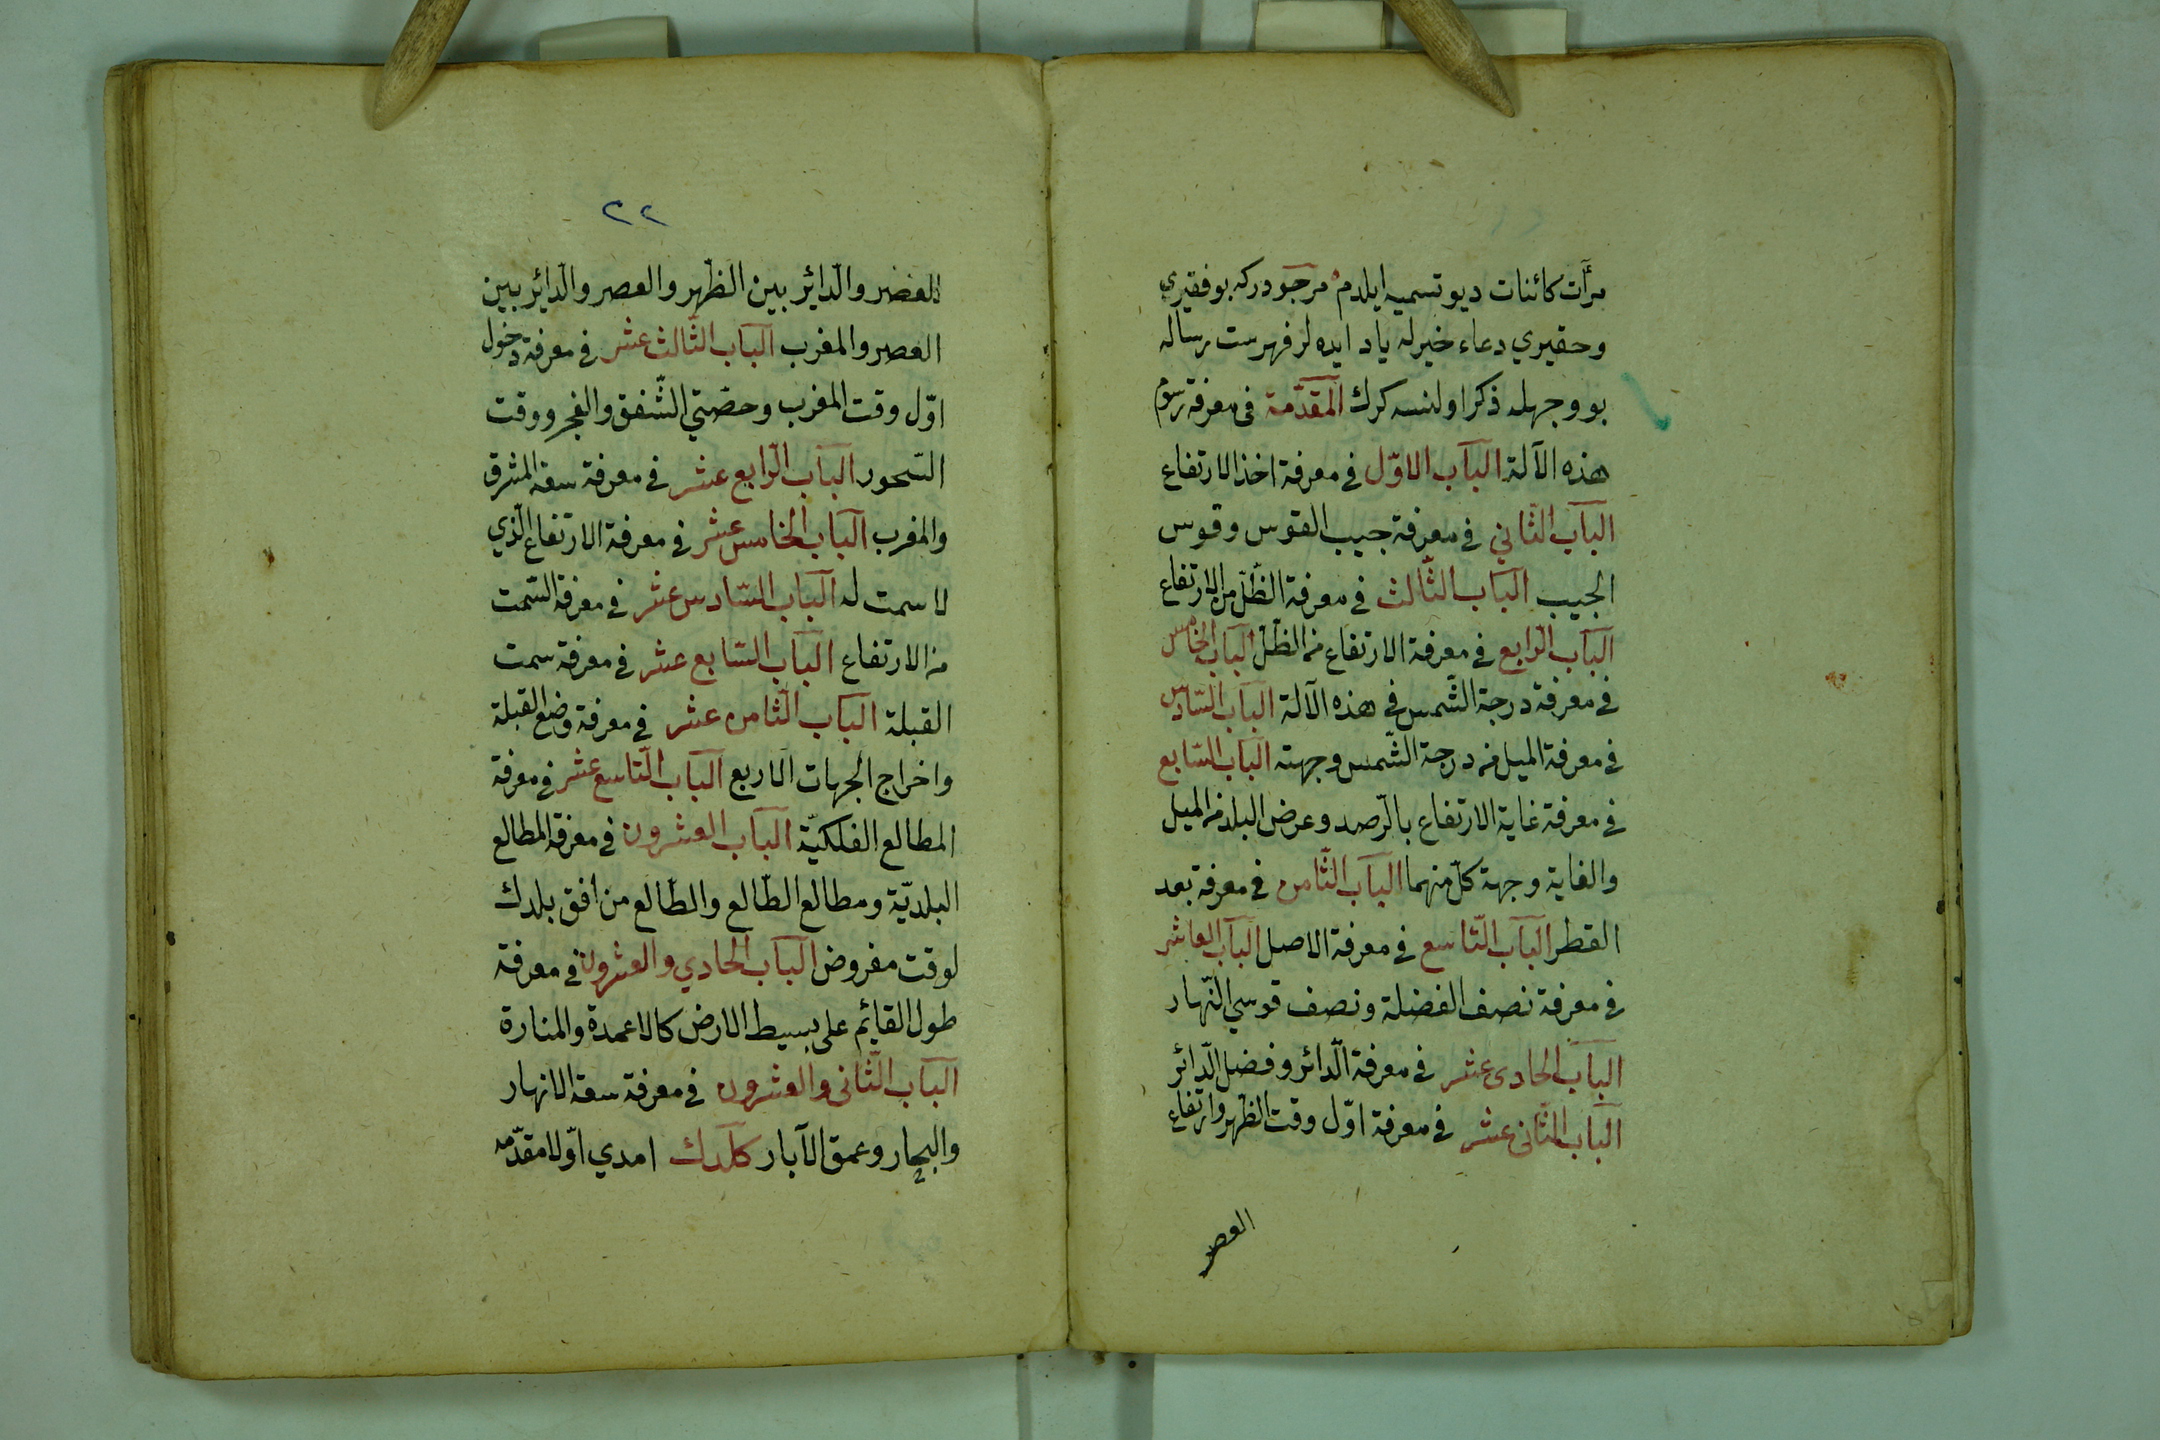 مرآت كائنات ديو تسميه ايلدم مرجودركه بو فقيري
وحقيري دعاء خيرله ياد ايده لر فهرست رساله
بو وجهله ذكر اولنسه كرك المقدّمة فى معرفة رسوم
هذه الآلة الباب الاوّل في معرفة اخذ الارتفاع
الباب الثّاني في معرفة جيب القوس وقوس
الجيب الباب الثّالث في معرفة الظّلّ من الارتفاع
الباب الرّابع في معرفة الارتفاع من الظّلّ الباب الخامس
في معرفة درجة الشّمس في هذه الآلة الباب السّادس
في معرفة الميل من درجة الشّمس وجهته الباب السّابع
في معرفة غاية الارتفاع بالرّصد وعرض البلد من الميل
والغاية وجهة كلّ منهما الباب الثّامن في معرفة بعد
القطر الباب التّاسع في معرفة الاصل الباب العاشر
في معرفة نصف الفضلة ونصف قوسي النّهار
الباب الحادى عشر في معرفة الدّائر وفضل الدّائر
الباب الثّانى عشر في معرفة اوّل وقت الظهر وارتفاع
العصر
٢٢
العصر والدّائر بين الظّهر والعصر والدّائر بين
العصر والمغرب الباب الثّالث عشر في معرفة دخول
اوّل وقت المغرب وحصّتي الشّفق والفجر ووقت
السّحور الباب الرّابع عشر في معرفة سعة المشرق
والمغرب الباب الخامس عشر في معرفة الارتفاع الّذي
لا سمت له الباب السّادس عشر في معرفة السّمت
من الارتفاع الباب السّابع عشر في معرفة سمت
القبلة الباب الثّامن عشر في معرفة وضع القبلة
واخراج الجهات الاربع الباب التّاسع عشر في معرفة
المطالع الفلكيّة الباب العشرون في معرفة المطالع
البلديّة ومطالع الطّالع والطّالع من افق بلدك
لوقت مفروض الباب الحادي والعشرون في معرفة
طول القائم على بسيط الارض كالاعمدة والمنارة
الباب الثّانى والعشرون في معرفة سعة الانهار
والبحار وعمق الآبار كلدك امدي اوّلا مقدّمه